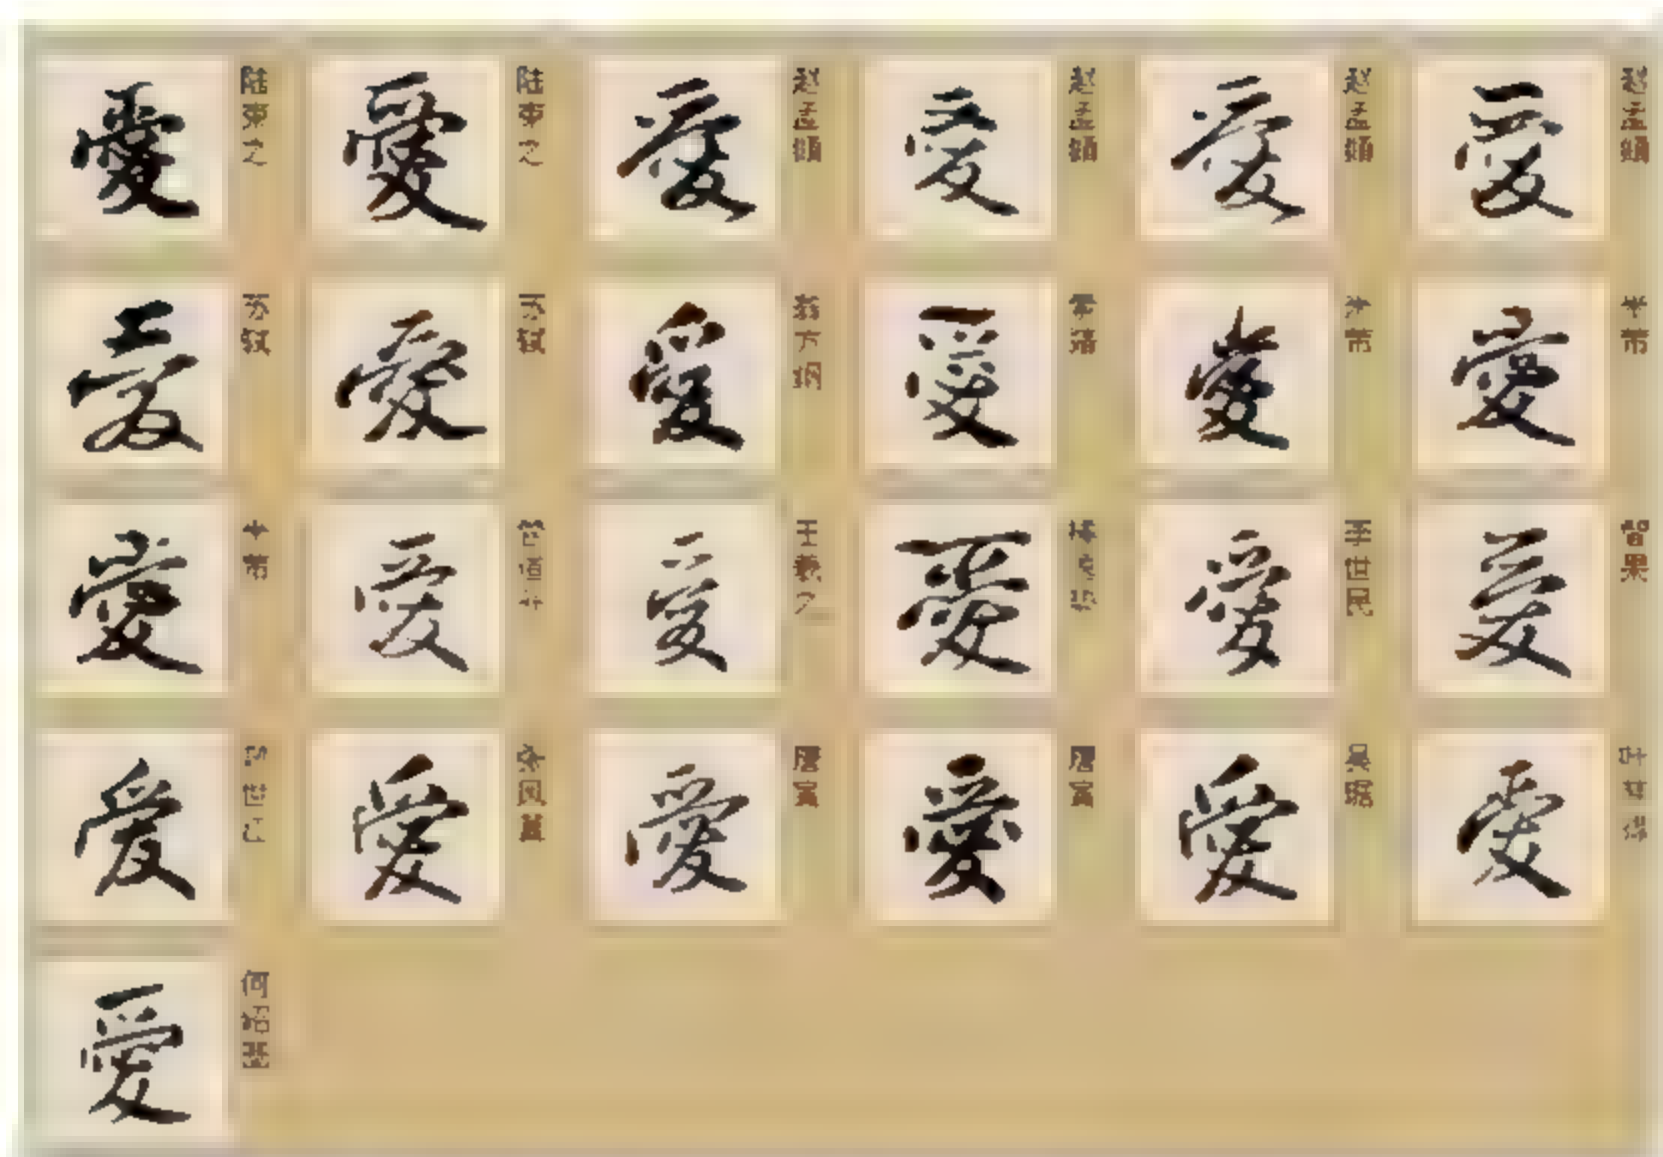 愛 陆柬之 愛 陆柬之 愛 赵孟頫 愛 赵孟頫 愛 赵孟頫 愛 赵孟頫
愛 苏轼 愛 苏轼 愛 翁方纲 愛 愛 米芾 愛 米芾
愛 米芾 愛 管道升 愛 王羲之 愛 愛 李世民 愛 智果
愛 愛 愛 唐寅 愛 唐寅 愛 吴琚 愛
愛 何绍基